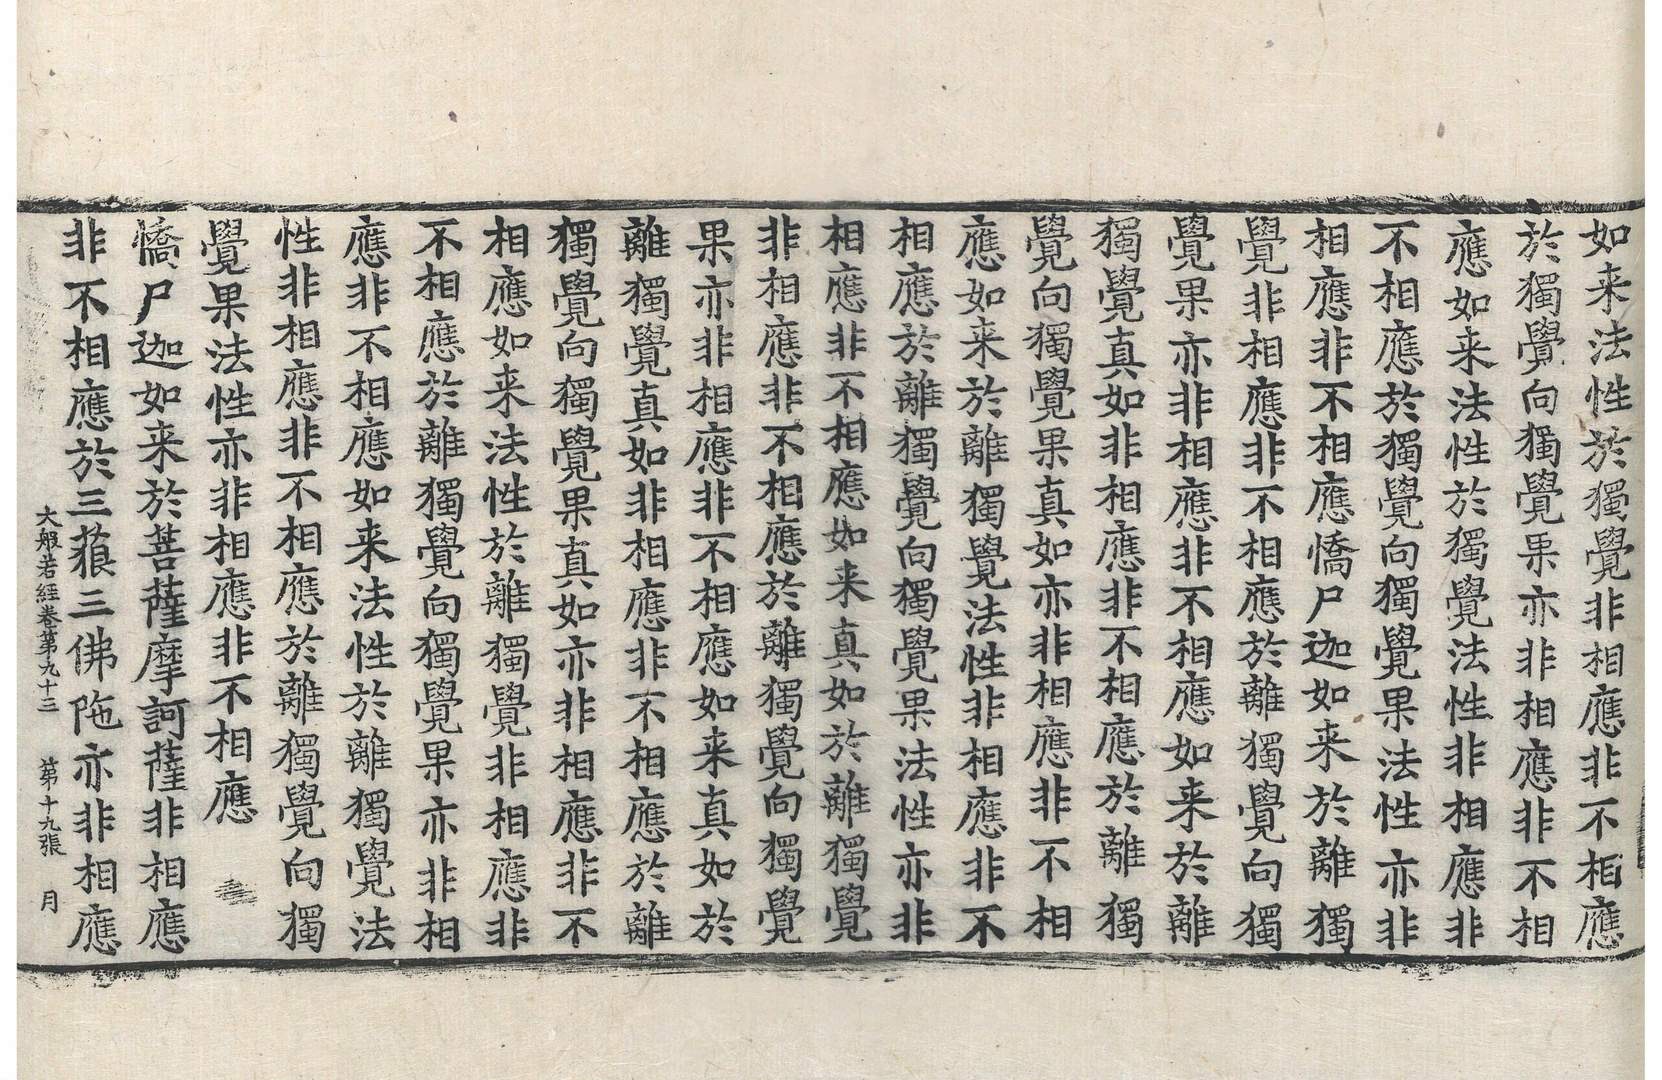 如来法性於獨覺非相應非不相應
於獨覺向獨覺果亦非相應非不相
應如来法性於獨覺法性非相應非
不相應於獨覺向獨覺果法性亦非
相應非不相應憍尸迦如来於離獨
覺非相應非不相應於離獨覺向獨
覺果亦非相應非不相應如来於離
獨覺真如非相應非不相應於離獨
覺向獨覺果真如亦非相應非不相
應如来於離獨覺法性非相應非不
相應於離獨覺向獨覺果法性亦非
相應非不相應如来真如於離獨覺
非相應非不相應於離獨覺向獨覺
果亦非相應非不相應如来真如於
離獨覺真如非相應非不相應於離
獨覺向獨覺果真如亦非相應非不
相應如来法性於離獨覺非相應非
不相應於離獨覺向獨覺果亦非相
應非不相應如来法性於離獨覺法
性非相應非不相應於離獨覺向獨
覺果法性亦非相應非不相應
憍尸迦如来於菩薩摩訶薩非相應
非不相應於三藐三佛陁亦非相應
大般若經卷第九十三 第十九張 月